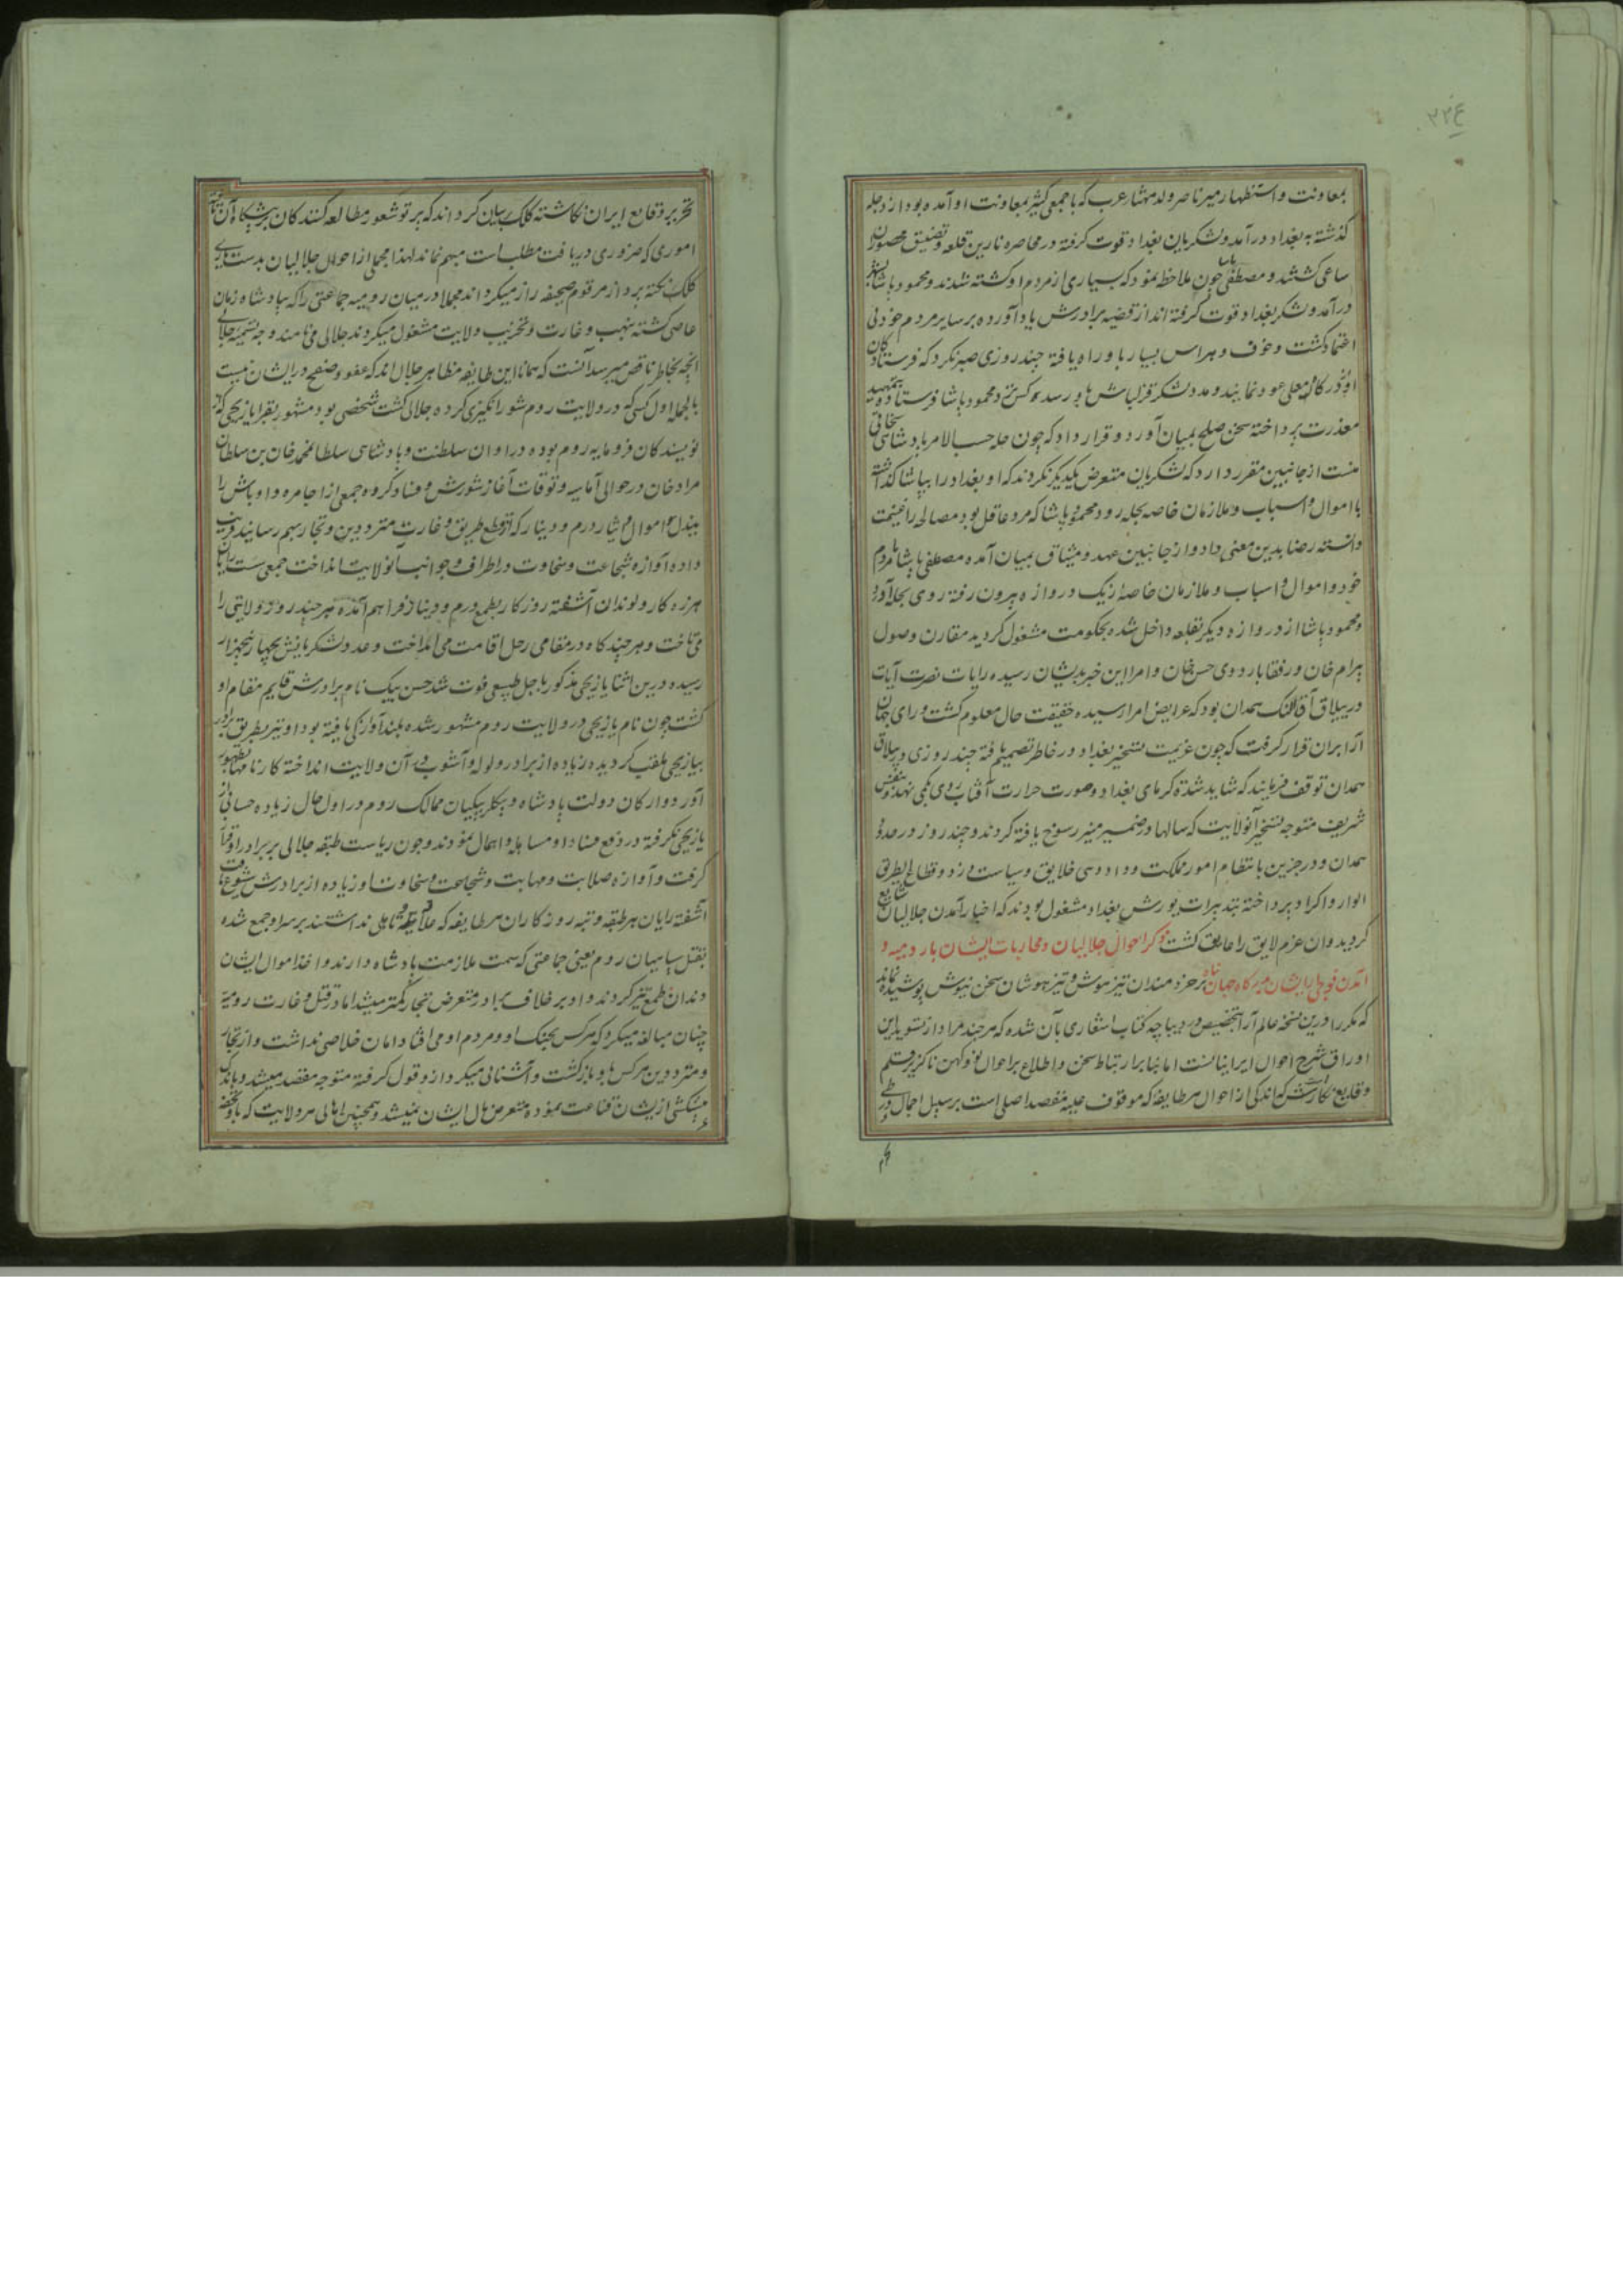 بمعاونت و استظهار میر ناصر ولد مهنا عرب که با جمعی کثیر بمعاونت او آمده بود از دجله
کذشته به بغداد درآمد و لشکریان بغداد قوت کرفته در محاصره نارین قلعه و تضییق محصوران
ساعی کشتند و مصطفی پاشا چون ملاحظه نمود که بسیاری از مردم او کشته شدند و محمود پاشا بشهر
درآمد و لشکر بغداد قوت کرفته اند از قضیه برادرش یاد آورده بر سایر مردم خود بی
اعتماد کشت و خوف و هراس بسیار باو راه یافته چند روزی صبر نکرد که فرستادکان
او از درکاه معلی عود نمایند و مدد لشکر قزلباش باو رسد کس نزد محمود پاشا فرستاده بتمهید
معذرت پرداخته سخن صلح بمیان آورد و قرار داد که چون حله حسب الامر پادشاهی
منست از جانبین مقرر دارد که لشکریان متعرض یکدیکر نکردند که او بغداد را بپاشا کذاشته
با اموال و اسباب و ملازمان خاصه بحله رود محمود پاشا که مرد عاقل بود مصالحه را غنیمت
دانسته رضا بدین معنی داد و از جانبین عهد و میثاق بمیان آمده مصطفی پاشا با مردم
خود و اموال و اسباب و ملازمان خاصه از یک دروازه بیرون رفته روی بحله آورد
و محمود پاشا از دروازه دیکر بقلعه داخل شده بحکومت مشغول کردید مقارن وصول
بیرام خان و رفقا باردوی حسن خان و امرا این خبر بدیشان رسیده رایات نصرت آیات
در ییلاق آق کلنک همدان بود که عرایض امرا رسیده حقیقت حال معلوم کشت و رای جهان
آرا بران قرار کرفت که چون عزیمت تسخیر بغداد در خاطر تصمیم یافته چند روزی در ییلاق
همدان توقف فرمایند که شاید شدة کرمای بغداد و صورت حرارت آفتاب روی بکمی نهد و بنفس
شریف متوجه تسخیر آنولایت که سالها در ضمیر منیر رسوخ یافته کردند و چند روز در حدود
همدان و درجزین بانتظام امور مملکت و دادرسی خلایق و سیاست دزد و قطاع الطریق
الوار و اکراد پرداخته بتدبیرات یورش بغداد مشغول بودند که اخبار آمدن جلالیان شایع
کردید و آن عزم لایق را عایق کشت ذکر احوال جلالیان و محاربات ایشان با رومیه و
آمدن فوجی از ایشان بدرکاه جهان پناه بر خردمندان تیزهوش و تیزهوشان سخن نیوش پوشیده نماند
که مکررا درین نسخه عالم آرا بتخصیص در دیباچه کتاب اشعاری بآن شده که هر چند مراد از تسوید این
اوراق شرح احوال ایرانیانست اما بنابر ارتباط سخن و اطلاع بر احوال نو و کهن ناکزیر رقم
وقایع نکارست که اندکی از احوال هر طایفه که موقوف علیه مقصد اصلی است برسبیل اجمال در طی
تحریر وقایع ایران نکاشته کلک بیان کرداند که بر تو شعور مطالعه کنندکان
اموری که ضروری دریافت مطلب است مبهم نماند لهذا مجملی از احوال جلالیان بدستیاری
کلک نکته پرداز مرقوم صحیفه راز میکرداند مجملا در میان رومیه جماعتی را که بپادشاه زمان
عاصی کشته بنهب و غارت و تخریب ولایت مشغول میکردند جلالی می نامند و وجه تسمیه جلالی
آنچه بخاطر ناقص میرسد آنست که همانا این طایفه مظاهر جلال اند که عفو و صفح در ایشان نیست
بالجمله اول کسی که در ولایت روم شورانکیزی کرده جلالی کشت شخصی بود مشهور بقرایازیجی که از
نویسندکان فرومایه روم بوده در اوان سلطنت و پادشاهی سلطان محمد خان بن سلطان
مراد خان در حوالی آماسیه و توقات آغاز شورش و فساد کرده جمعی از اجامره و اوباش را
ببذل اموال و ایثار درم و دینار که از قطع طریق و غارت مترددین و تجار بهم رسانید فریب
داده آوازه شجاعت و سخاوت در اطراف و جوانب آنولایت انداخت جمعی سست رایان
هرزه کار و لوندان آشفته روزکار بطمع درم و دینار فراهم آمده هر چند روز ولایتی را
می تاخت و هر چند کاه در مقامی رحل اقامت می انداخت و عدد لشکریانش بچهار پنجهزار
رسیده درین اثنا یازیجی مذکور باجل طبیعی فوت شد حسن بیک نام برادرش قایم مقام او
کشت چون نام یازیجی در ولایت روم مشهور شده بلندآوازکی یافته بود او نیز بطریق برادر
بیازیجی ملقب کردیده زیاده از برادر ولوله و آشوب در آن ولایت انداخته کارنامها بظهور
آورد و ارکان دولت پادشاه و بکلربیکیان ممالک روم در اول حال زیاده حسابی از
یازیجی نکرفته در دفع فساد او مساهله و اهمال نمودند و چون ریاست طبقه جلالی بر برادر او قرار
کرفت و آوازه صلابت و مهابت و شجاعت و سخاوت او زیاده از برادرش شیوع یافت
آشفته رایان هر طبقه و تبه روزکاران هر طایفه که علاقه و تاهلی نداشتند بر سر او جمع شده
بقتل سپاهیان روم یعنی جماعتی که سمت ملازمت پادشاه دارند و اخذ اموال ایشان
دندان طمع تیز کردند و او بر خلاف برادر متعرض تجار کمتر میشد اما در قتل و غارت رومیه
چنان مبالغه میکرد که هر کس بجنک او و مردم او می افتاد امان خلاصی نداشت و از تجار
و مترددین هر کس باو بازکشت و آشنائی میکرد ازو قول کرفته متوجه مقصد میشد و باندک
پیشکشی از ایشان قناعت نموده متعرض مال ایشان نمیشد و همچنین اهالی هر ولایت که باو